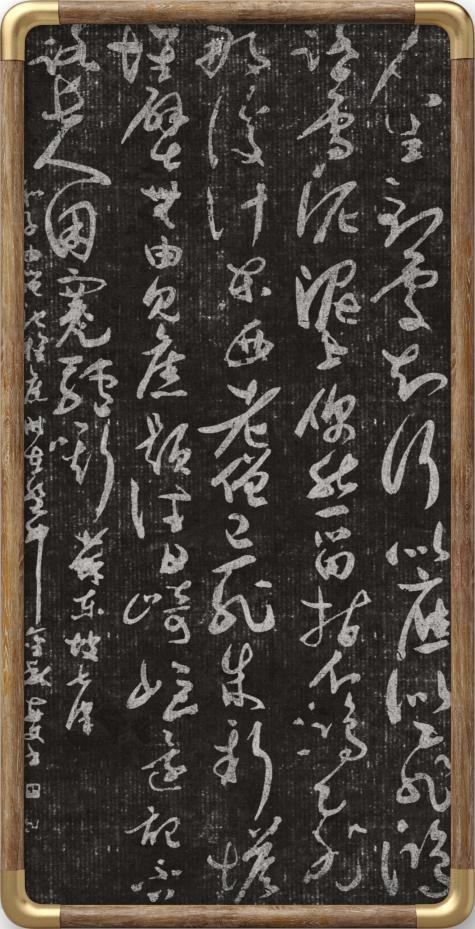 人生到處知何似應似飛鴻
踏雪泥泥上偶然留指爪鴻飛
那復計東西老僧已死成新塔
壞壁無由見舊題往日崎嶇還記否
路長人困蹇驢嘶蘇東坡七律
和子由澠池懷舊